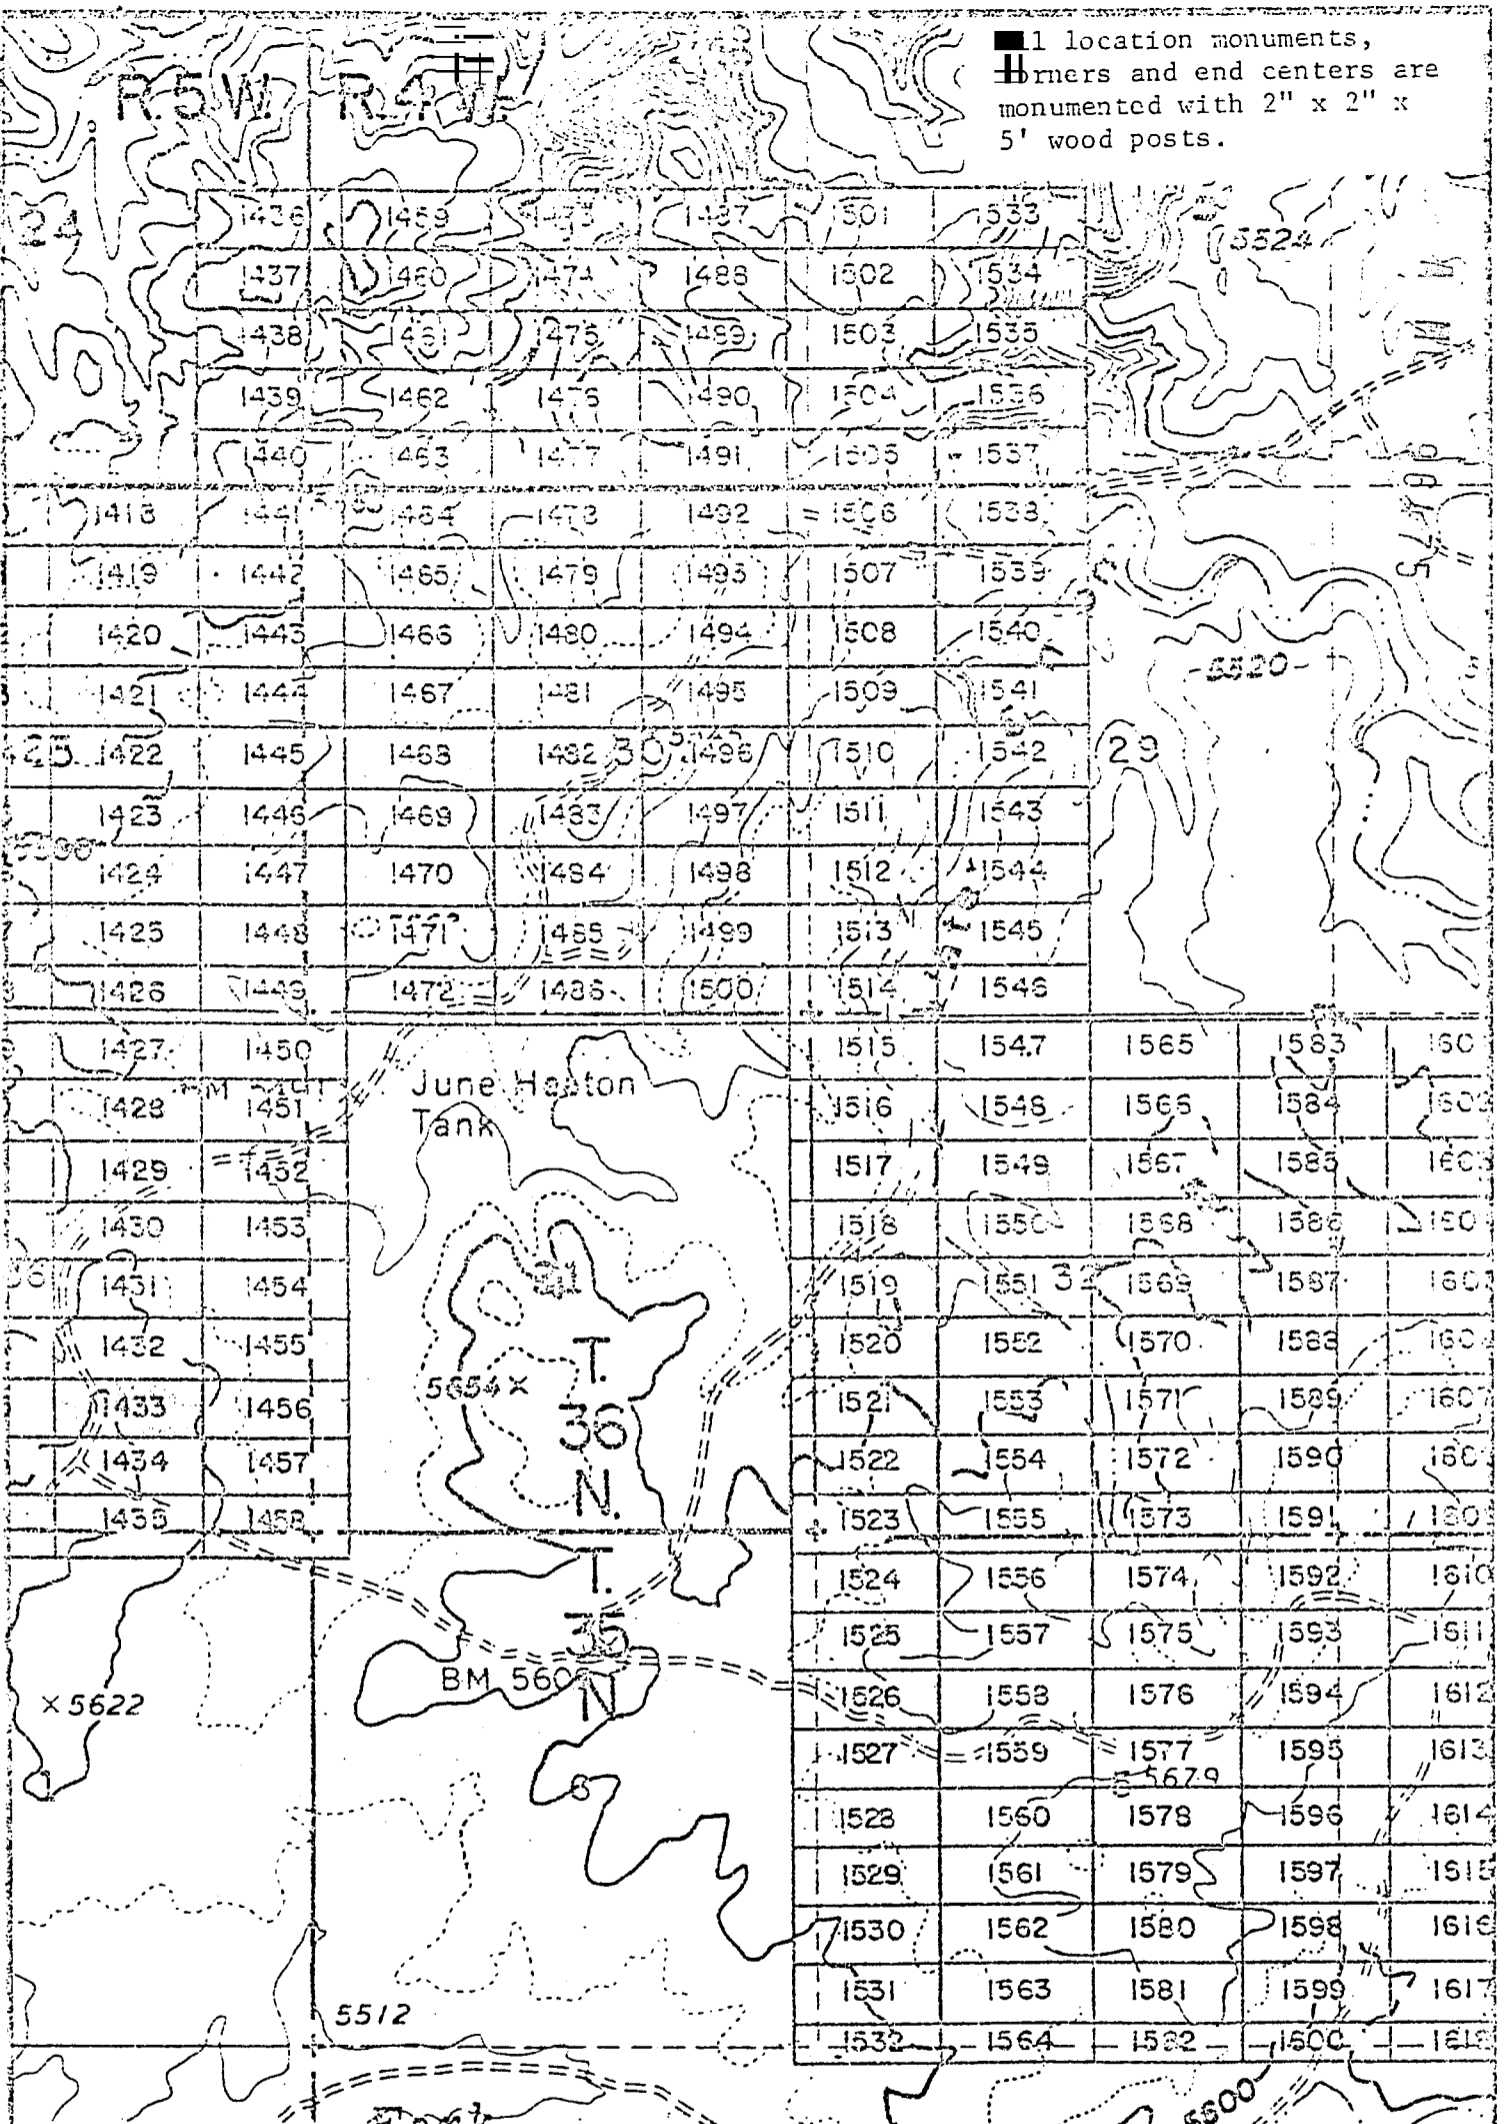 1 location monuments,
rners and end centers are
monumented with 2" x 2" x
5' wood posts.
R.5W. R.4W.
24 1436 1459 1473 1487 1501 1533
5524
1437 1460 1474 1488 1502 1534
1438 1461 1475 1489 1503 1535
1439 1462 1476 1490 1504 1536
1440 1463 1477 1491 1505 1537
1418 1441 1464 1478 1492 1506 1538
1419 1442 1465 1479 1493 1507 1539
1420 1443 1466 1480 1494 1508 1540
5520
1421 1444 1467 1481 1495 1509 1541
25 1422 1445 1468 1482 30 1496 1510 1542 29
1423 1446 1469 1483 1497 1511 1543
1424 1447 1470 1484 1498 1512 1544
1425 1448 1471 1485 1499 1513 1545
1426 1449 1472 1486 1500 1514 1546
1427 1450 1515 1547 1565 1583
June Heaton
Tank
1428 1451 1516 1548 1566 1584
1429 1452 1517 1549 1567 1585
1430 1453 1518 1550 1568 1586
1431 1454 31 1519 1551 32 1569 1587
1432 1455 T. 1520 1552 1570 1588
5654 × 1433 1456 36 1521 1553 1571 1589 1607
1434 1457 N. 1522 1554 1572 1590
1435 1458 1523 1555 1573 1591
T. 1524 1556 1574 1592 1610
35 1525 1557 1575 1593 1611
× 5622 BM 560 N 1526 1558 1576 1594 1612
1527 1559 1577 1595 1613
5679
6 1528 1560 1578 1596 1614
1529 1561 1579 1597 1615
1530 1562 1580 1598 1616
1531 1563 1581 1599 1617
5512
1532 1564 1582 1600 1618
5600